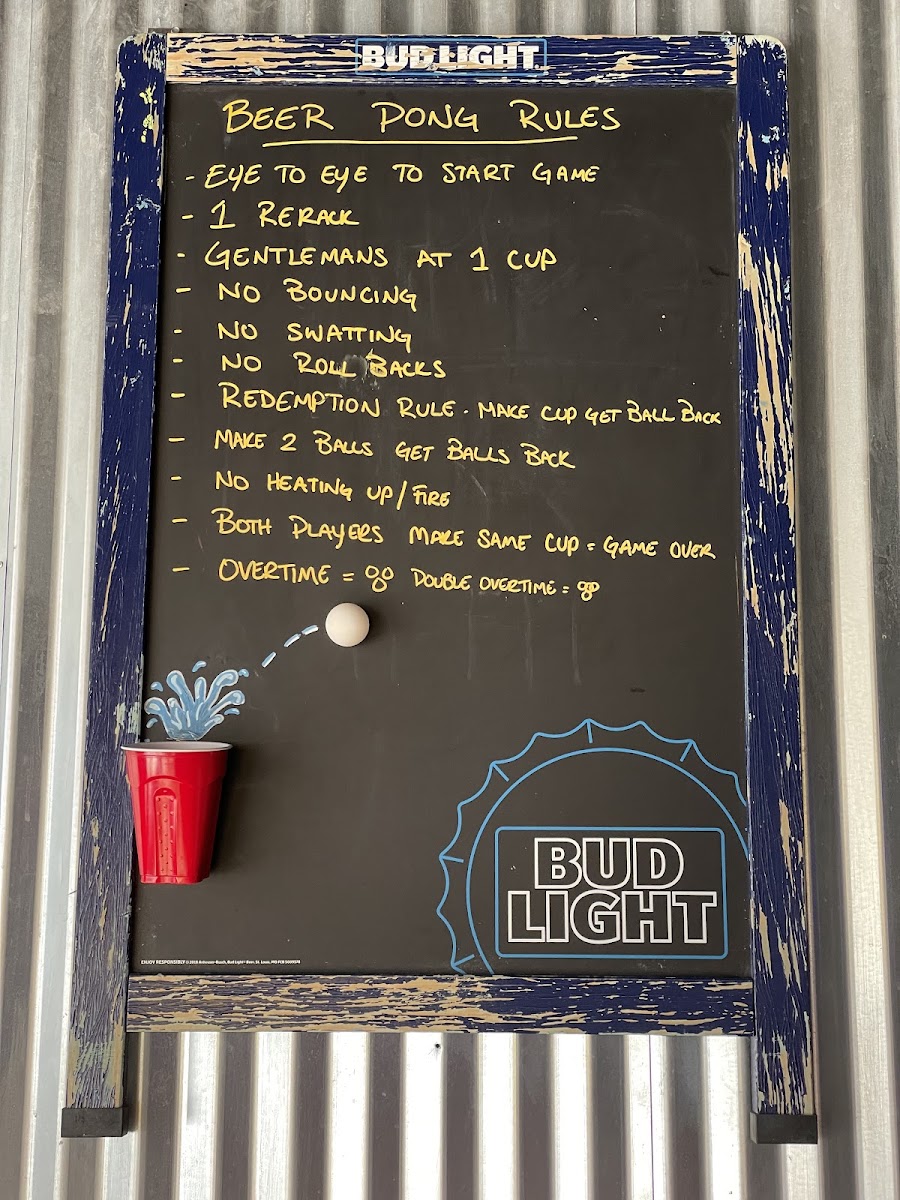 BUD LIGHT
BEER PONG RULES
- EYE TO EYE TO START GAME
- 1 RERACK
- GENTLEMANS AT 1 CUP
- NO BOUNCING
- NO SWATTING
- NO ROLL BACKS
- REDEMPTION RULE - MAKE CUP GET BALL BACK
- MAKE 2 BALLS GET BALLS BACK
- NO HEATING UP / FIRE
- BOTH PLAYERS MAKE SAME CUP = GAME OVER
- OVERTIME = DOUBLE OVERTIME =
BUD
LIGHT
ENJOY RESPONSIBLY